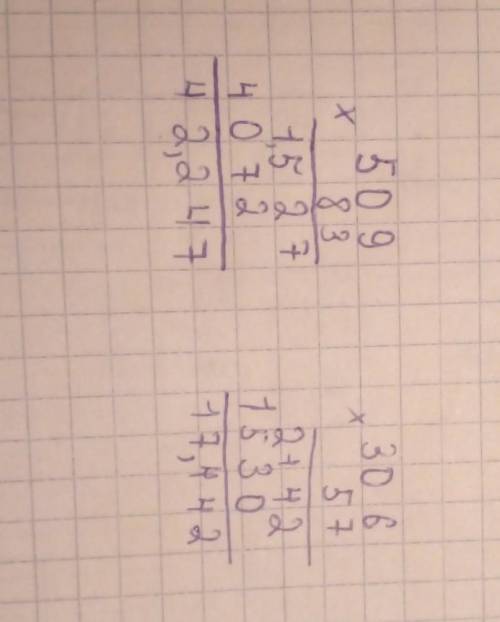 × 509
83
1,527
4072
42,247
× 306
57
2142
1530
17,442